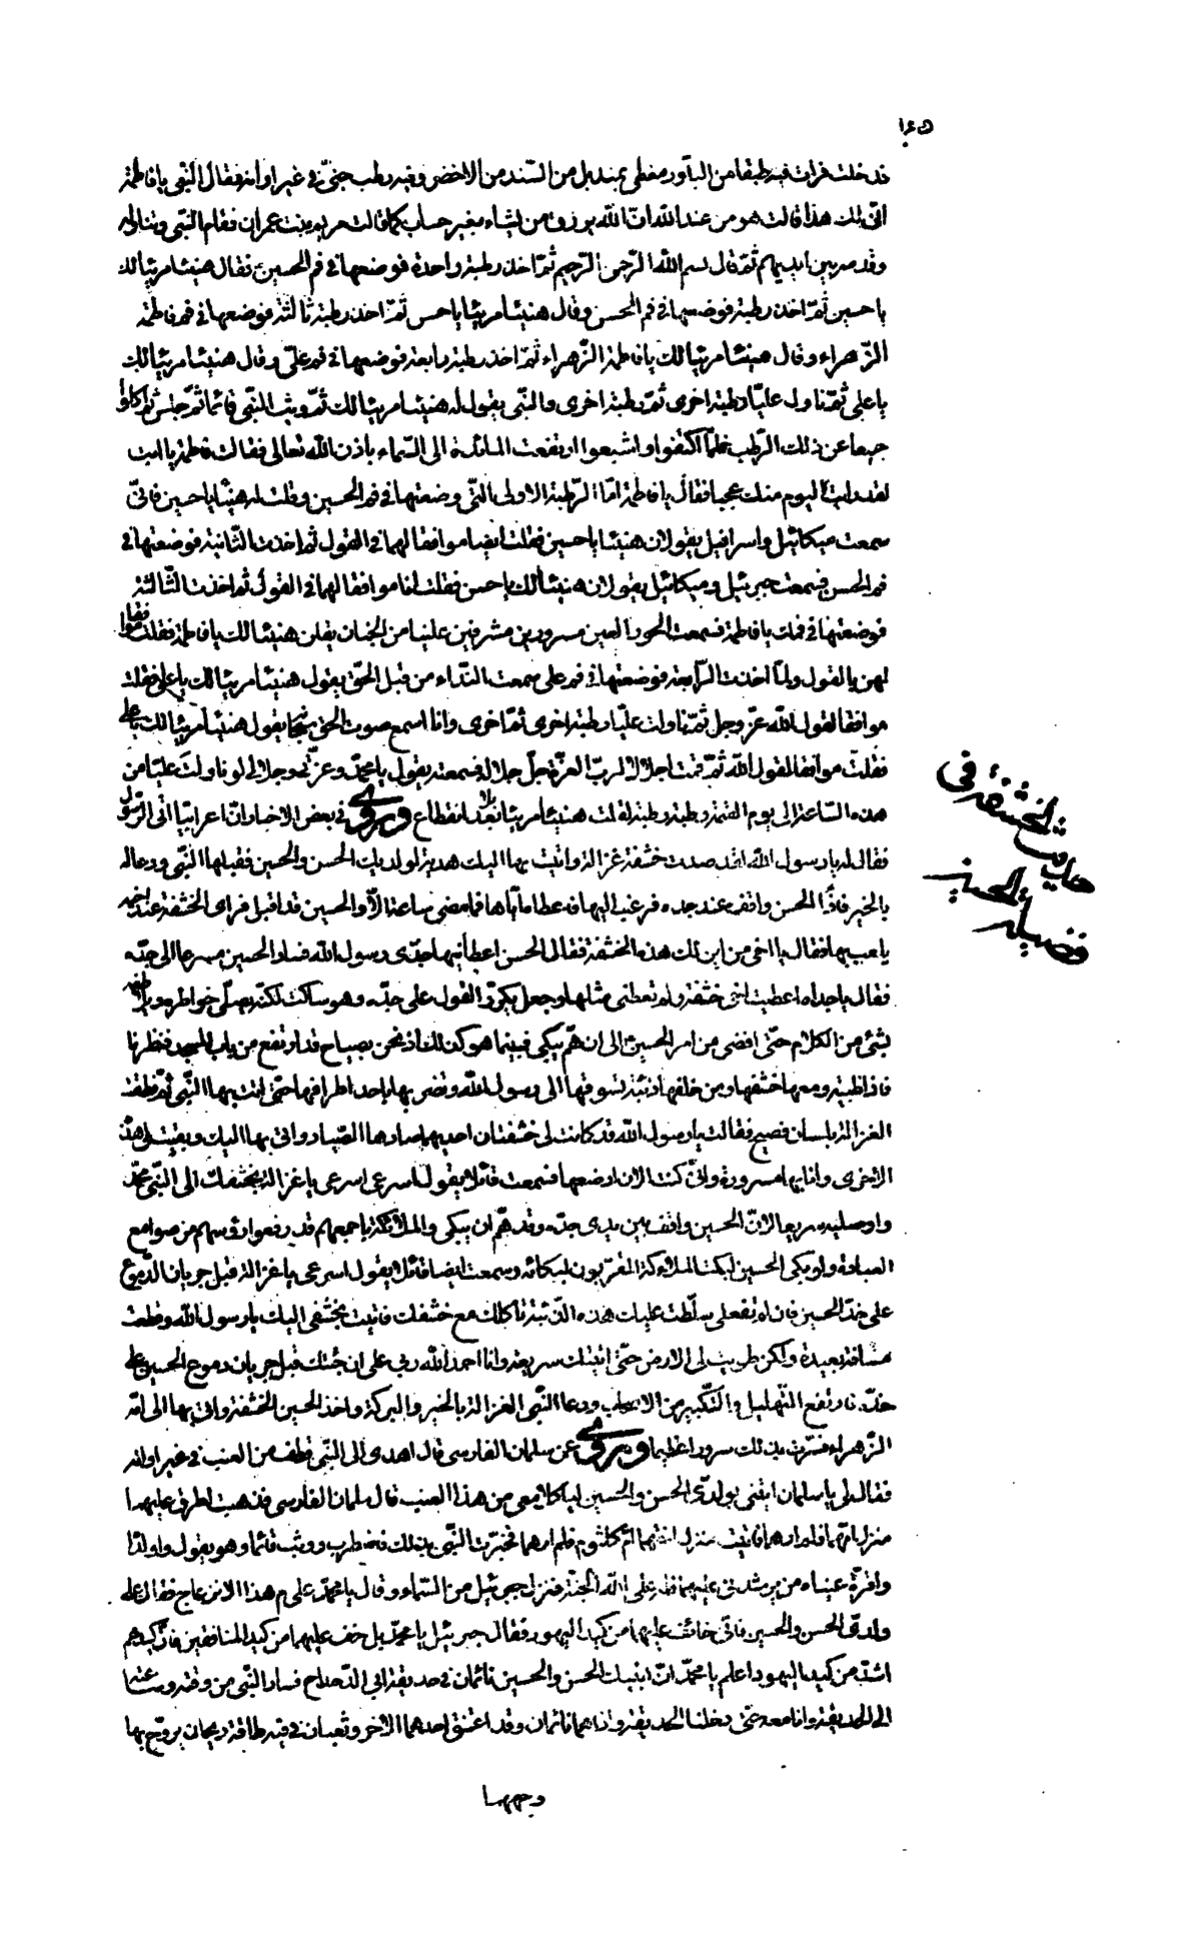 ١٤٥
فدخلت فرات فيه طبقا من البلّور مغطى بمنديل من السندس الاخضر وفيه رطب جنىّ فى غير اوانه فقال النّبى يا فاطمة
انّى لك هذا قالت هو من عند الله انّ الله يرزق من يشاء بغير حساب كما قالت مريم بنت عمران فقام النّبى وتناوله
وقدمه بين ايديهم ثمّ قال بسم الله الرّحمن الرّحيم ثمّ اخذ رطبة واحدة فوضعها فى فم الحسين فقال هنيئا مريئا لك
يا حسين ثمّ اخذ رطبة فوضعها فى فم الحسن وقال هنيئا مريئا يا حسن ثمّ اخذ رطبة ثالثة فوضعها فى فم فاطمة
الزّهراء وقال هنيئا مريئا لك يا فاطمة الزّهراء ثمّ اخذ رطبة رابعة فوضعها فى فم علىّ وقال هنيئا مريئا لك
يا على ثمّ ناول عليّا رطبة اخرى ثمّ رطبة اخرى والنّبى يقول له هنيئا مريئا لك ثمّ وثب النّبى قائما ثمّ جلس ثمّ اكلوا
جميعا عن ذلك الرّطب فلمّا اكتفوا واشبعوا ارتفعت المائدة الى السّماء باذن الله تعالى فقالت فاطمة يا ابت
لقد رايت اليوم منك عجبا فقال يا فاطمة امّا الرّطبة الاولى الّتى وضعتها فى فم الحسين وقلت له هنيئا يا حسين فانّى
سمعت ميكائيل واسرافيل يقولان هنيئا يا حسين فقلت ايضا موافقا لهما فى القول ثم اخذت الثّانية فوضعتها فى
فم الحسن فسمعت جبرئيل وميكائيل يقولان هنيئا لك يا حسن فقلت انا موافقا لهما فى القول ثم اخذت الثّالثة
فوضعتها فى فمك يا فاطمة فسمعت الحور العين مسرورين مشرفين علينا من الجنان يقلن هنيئا لك يا فاطمة فقلت موافقا
لهن بالقول ولمّا اخذت الرّابعة فوضعتها فى فم على سمعت النّداء من قبل الحقّ يقول هنيئا مريئا لك يا على فقلت
موافقا لقول الله عزّ وجل ثمّ ناولت عليّا رطبة اخرى ثمّ اخرى وانا اسمع صوت الحق سبحانه يقول هنيئا مريئا لك يا على
فقلت موافقا لقول الله ثمّ قمت اجلالا لربّ العزّة جلّ جلاله فسمعته يقول يا محمّد وعزّتى وجلالى لو ناولت عليّا من
هذه السّاعة الى يوم القيمة رطبة رطبة لقلت هنيئا مريئا بعد بلا انقطاع وروى فى بعض الاخبار انّ اعرابيّا اتى الرّسول
فقال له يا رسول الله لقد صدت خشفة غزالة واتيت بها اليك هدية لولديك الحسن والحسين فقبلها النّبى ودعا له
بالخير فاذا الحسن واقف عند جده فرغب اليها فاعطاه ايّاها فما مضى ساعة الّا والحسين قد اقبل فراى الخشفة عند اخيه
يلعب بها فقال يا اخى من اين لك هذه الخشفة فقال الحسن اعطانيها جدّى رسول الله فسار الحسين مسرعا الى جدّه
فقال يا جداه اعطيت اخى خشفة ولم تعطنى مثلها وجعل يكرّر القول على جدّه وهو ساكت لكنّه يسلّى خواطره ويلاطفه
بشئ من الكلام حتّى افضى من امر الحسين الى ان همّ يبكى فبينما هو كذلك اذ نحن بصياح قد ارتفع من باب المسجد فنظرنا
فاذا ظبية ومعها خشفها ومن خلفها ذئبة تسوقها الى رسول الله وتضربها باحد اطرافها حتّى اتت بها النّبى ثمّ نطقت
الغزالة بلسان فصيح فقالت يا رسول الله قد كانت لى خشفتان احديهما صادها الصّياد واتى بها اليك وبقيت لى هذه
الاخرى وانا بها مسرورة وانّى كنت الان ارضعها فسمعت قائلا يقول اسرعى اسرعى يا غزالة بخشفك الى النّبى محمّد
واوصليه سريعا لانّ الحسين واقف بين يدى جدّه وقد همّ ان يبكى والملائكة باجمعهم قد رفعوا رؤسهم من صوامع
العبادة ولو بكى الحسين لبكت الملائكة المقرّبون لبكائه وسمعت ايضا قائلا يقول اسرعى يا غزالة قبل جريان الدّموع
على خدّ الحسين فان لم تفعلى سلّطت عليك هذه الذّئبة تاكلك مع خشفك فاتيت بخشفى اليك يا رسول الله وقطعت
مسافة بعيدة ولكن طويت لى الارض حتّى اتيتك سريعة وانا احمد الله ربى على ان جئتك قبل جريان دموع الحسين على
خدّه فارتفع التّهليل والتّكبير من الاصحاب ودعا النّبى الغزالة بالخير والبركة واخذ الحسين الخشفة واتى بها الى امّه
الزّهراء فسرّت بذلك سرورا عظيما وروى عن سلمان الفارسى قال اهدى الى النّبى قطف من العنب فى غير اوانه
فقال لى يا سلمان ايتنى بولدىّ الحسن والحسين لياكلا معى من هذا العنب قال سلمان الفارسى فذهبت اطرق عليهما
منزل امّهما فلم ارهما فاتيت منزل اختهما امّ كلثوم فلم ارهما فخبّرت النّبى بذلك فاضطرب ووثب قائما وهو يقول واولداه
واقرّة عيناه من يرشدنى عليهما فله على الله الجنّة فنزل جبرئيل من السّماء وقال يا محمّد على م هذا الانزعاج فقال على
ولدىّ الحسن والحسين فانّى خائف عليهما من كيد اليهود فقال جبرئيل يا محمّد بل خف عليهما من كيد المنافقين فانّ كيدهم
اشدّ من كيد اليهود اعلم يا محمّد انّ ابنيك الحسن والحسين نائمان فى حديقة ابى الدّحداح فسار النّبى من وقته وساعته
الى الحديقة وانا معه حتّى دخلنا الحديقة واذا هما نائمان وقد اعتنق احدهما الاخر وثعبان فى فيه طاقة ريحان يروّح بها
وجههما
حكايت الخشفة فى
فضيلة الحسين